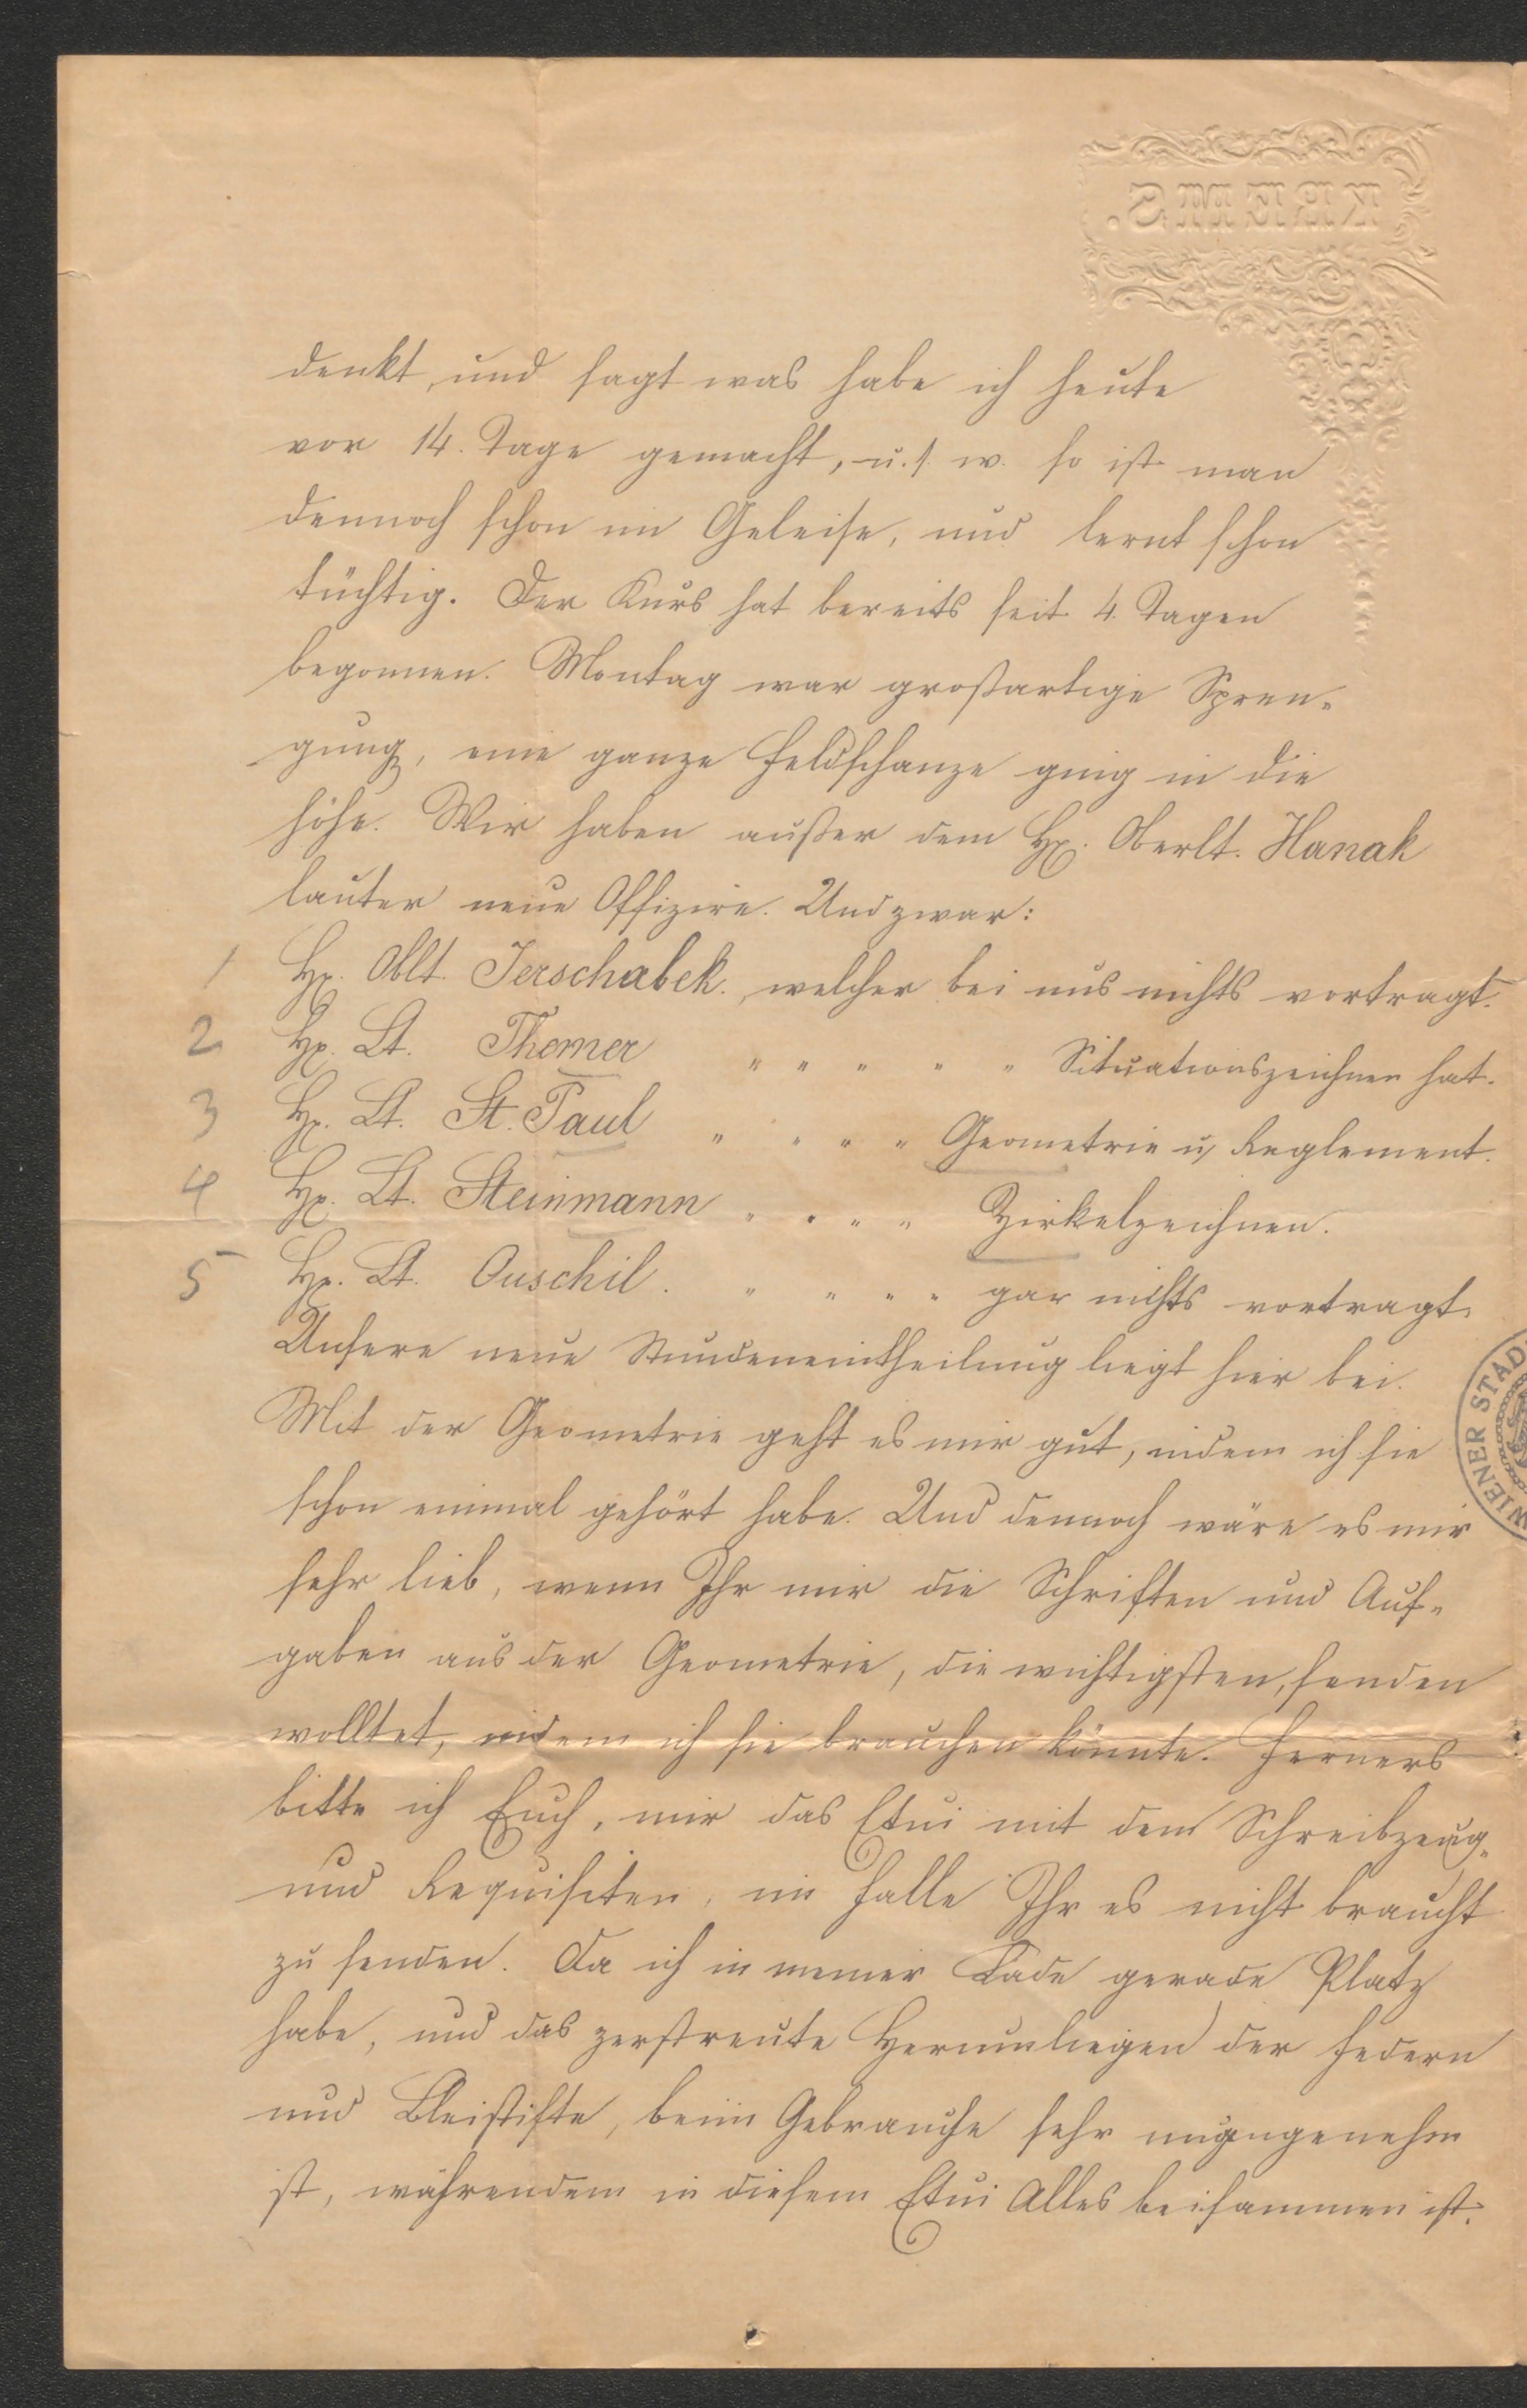 KREMS.
denkt, und sagt was habe ich heute
vor 14. Tage gemacht, u. s. w. so ist man
dennoch schon im Geleise, und lernt schon
tüchtig. Der Kurs hat bereits seit 4. Tagen
begonnen. Montag war großartige Spren-
gung, eine ganze Feldschanze ging in die
Höhe. Wir haben außer dem H. Oberlt. Hanak
lauter neue Offizire. Und zwar:
1 H. Oblt. Jerschabek., welcher bei uns nichts vortragt.
2 H. Lt. Themer " " " " " Situationszeichnen hat.
3 H. Lt. St. Paul " " " " Geometrie u, Reglement.
4 H. Lt. Steinmann " " " " Zirkelzeichnen.
5 H. Lt. Ouschil. " " " " gar nichts vortragt.
Unsere neue Stundeneintheilung liegt hier bei.
Mit der Geometrie geht es mir gut, indem ich sie
schon einmal gehört habe. Und dennoch wäre es mir
sehr lieb, wenn Ihr mir die Schriften und Auf-
gaben aus der Geometrie, die wichtigsten, senden
wolltet, indem ich sie brauchen könnte. Ferners
bitte ich Euch, mir das Etui mit dem Schreibzeug-
und Requisiten, im Falle Ihr es nicht braucht
zu senden. Da ich in meiner Lade gerade Platz
habe, und das zerstreute Herumliegen der Federn
und Bleistifte, beim Gebrauche sehr unangenehm
ist, währendem in diesem Etui Alles beisammen ist.
WIENER STAD